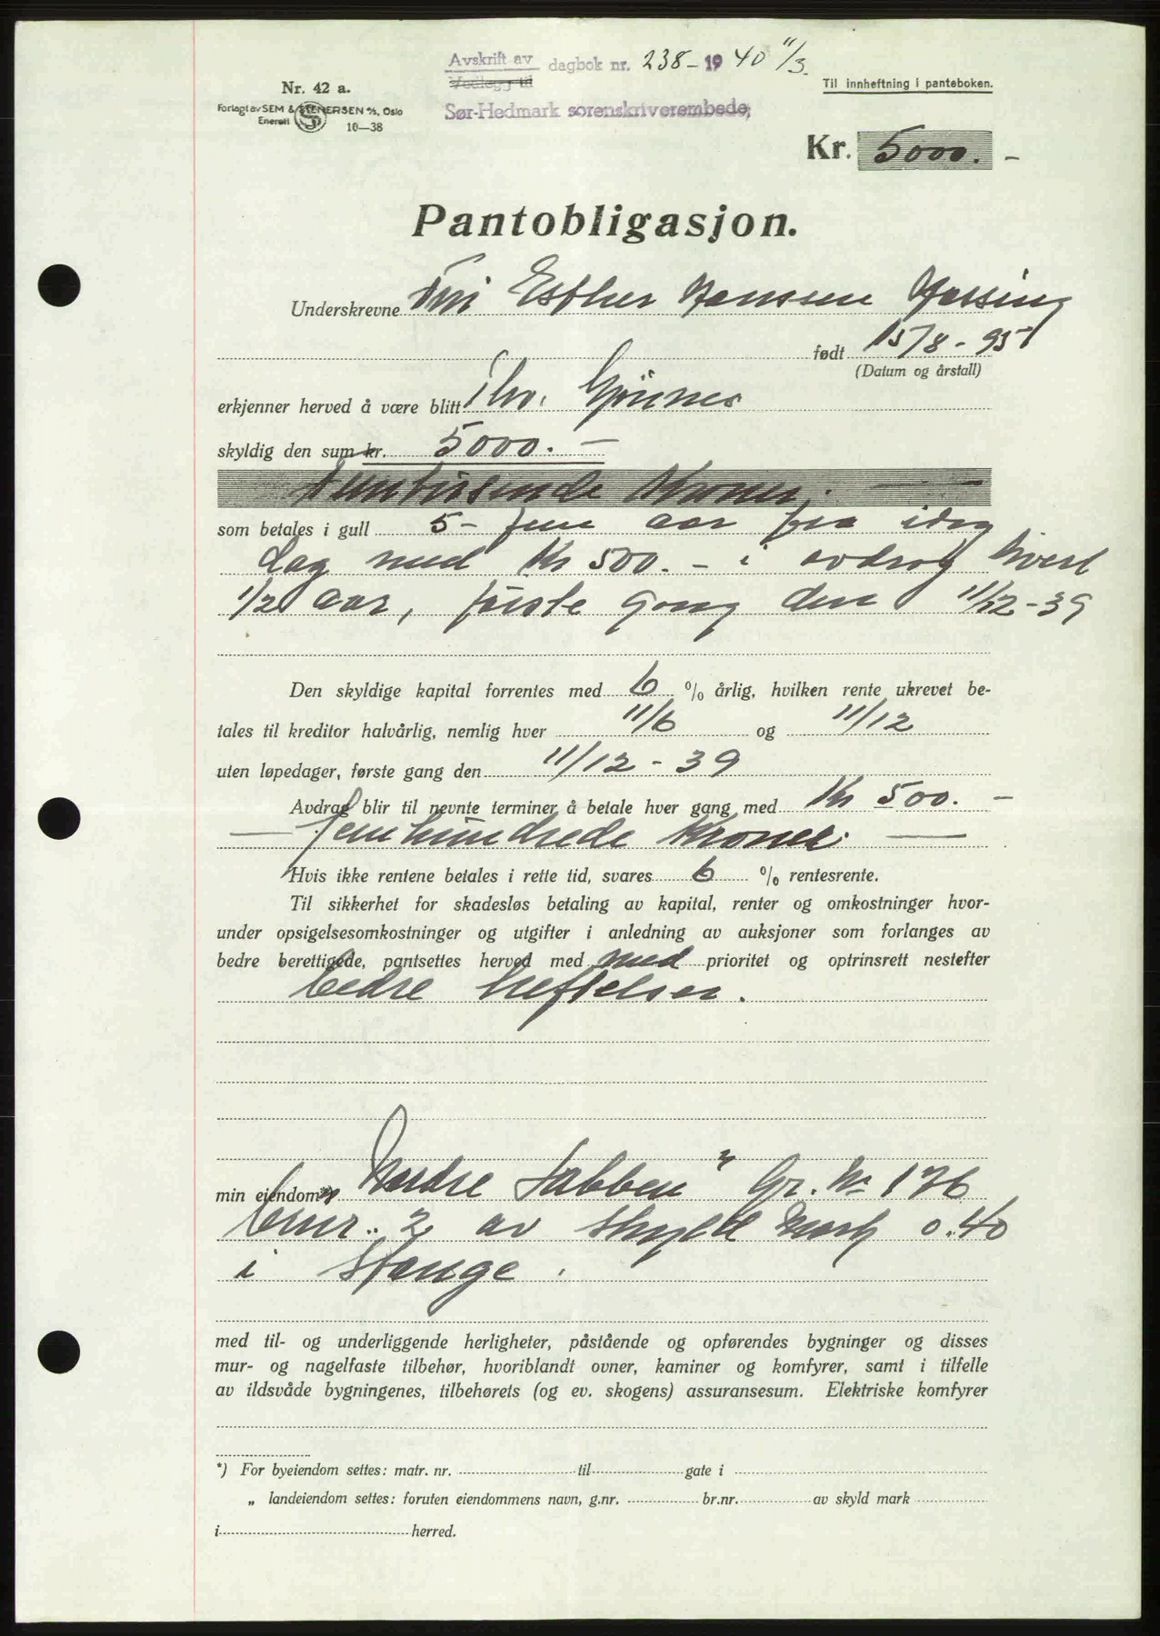 Avskrift av
Vedlegg til
dagbok nr. 238 - 1940 11/3.
Sør-Hedmark sorenskriverembede,
Til innheftning i panteboken.
Nr. 42 a.
Forlagt av SEM & STENERSEN A/S, Oslo
Enerett
10—38
Kr. 5000. -
Pantobligasjon.
Underskrevne Fru Esther Hanssen
født 15/8 - 95
(Datum og årstall)
erkjenner herved å være blitt Thv.
skyldig den sum kr. 5000. -
Femtusinde Kroner. -
som betales i gull 5 - fem aar fra idag
dag med Kr 500. - i avdrag hvert
1/2 aar, første gang den 11/12 - 39
Den skyldige kapital forrentes med 6 % årlig, hvilken rente ukrevet be-
tales til kreditor halvårlig, nemlig hver 11/6 og 11/12
uten løpedager, første gang den 11/12 - 39
Avdrag blir til nevnte terminer å betale hver gang med Kr 500. -
— femhundrede Kroner. —
Hvis ikke rentene betales i rette tid, svares 6 % rentesrente.
Til sikkerhet for skadesløs betaling av kapital, renter og omkostninger hvor-
under opsigelsesomkostninger og utgifter i anledning av auksjoner som forlanges av
bedre berettigede, pantsettes herved med med prioritet og optrinsrett nestefter
bedre heftelser.
min eiendom*) "Nordre Labben" Gr. No 176
brur. 2 av skyld Mark 0.40
i Stange.
med til- og underliggende herligheter, påstående og opførendes bygninger og disses
mur- og nagelfaste tilbehør, hvoriblandt ovner, kaminer og komfyrer, samt i tilfelle
av ildsvåde bygningenes, tilbehørets (og ev. skogens) assuransesum. Elektriske komfyrer
*) For byeiendom settes: matr. nr. til gate i
„ landeiendom settes: foruten eiendommens navn, g.nr. br.nr. av skyld mark
i herred.